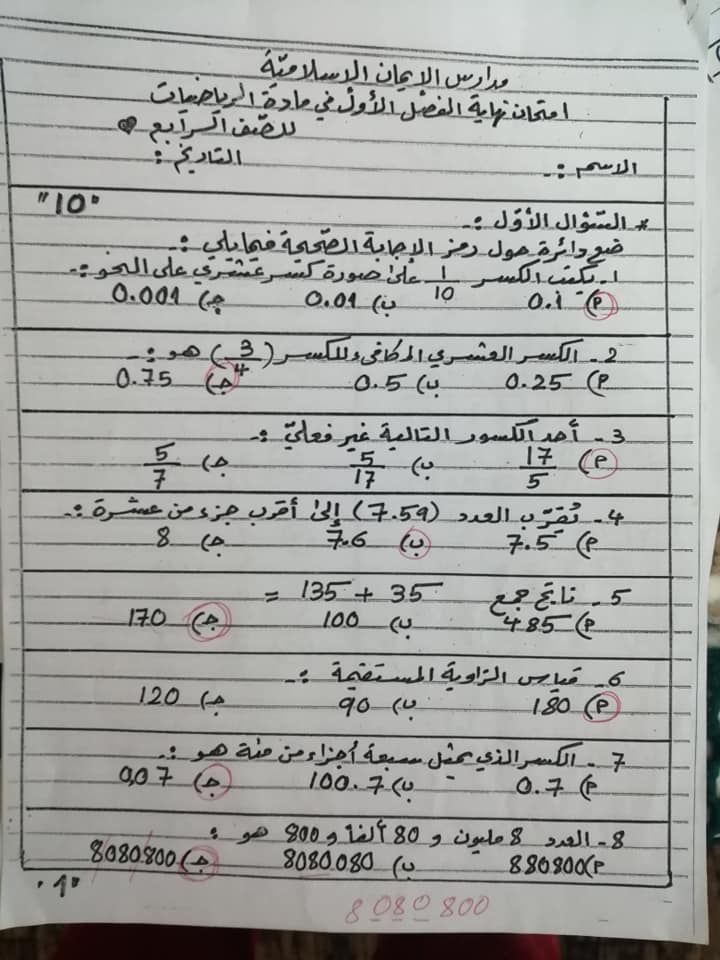 مدارس الإيمان الإسلاميّة
امتحان نهاية الفصل الأول في مادة الرياضيات
للصّف الرابع
الاسم :- التاريخ :
"10"
* السّؤال الأوّل :-
ضع دائرة حول رمز الإجابة الصّحيحة فيما يلي :-
1- يكتب الكسر 1/10 على صورة كسر عشري على النحو :-
أ) 0.1 ب) 0.01 ج) 0.001
2- الكسر العشري المكافىء للكسر (3/4) هو :-
أ) 0.25 ب) 0.5 ج) 0.75
3- أحد الكسور التالية غير فعليّ :-
أ) 17/5 ب) 5/17 ج) 5/7
4- تُقرّب العدد (7.59) إلى أقرب جزء من عشرة :-
أ) 7.5 ب) 7.6 ج) 8
5- ناتج جمع 35 + 135 =
أ) 485 ب) 100 ج) 170
6- قياس الزاوية المستقيمة :-
أ) 180 ب) 90 ج) 120
7- الكسر الذي يمثل سبعة أجزاء من مئة هو :-
أ) 0.7 ب) 100.7 ج) 0,07
8- العدد 8 مليون و 80 ألفاً و 800 هو :
أ) 880800 ب) 8080.080 ج) 8080800
"1"
8 080 800